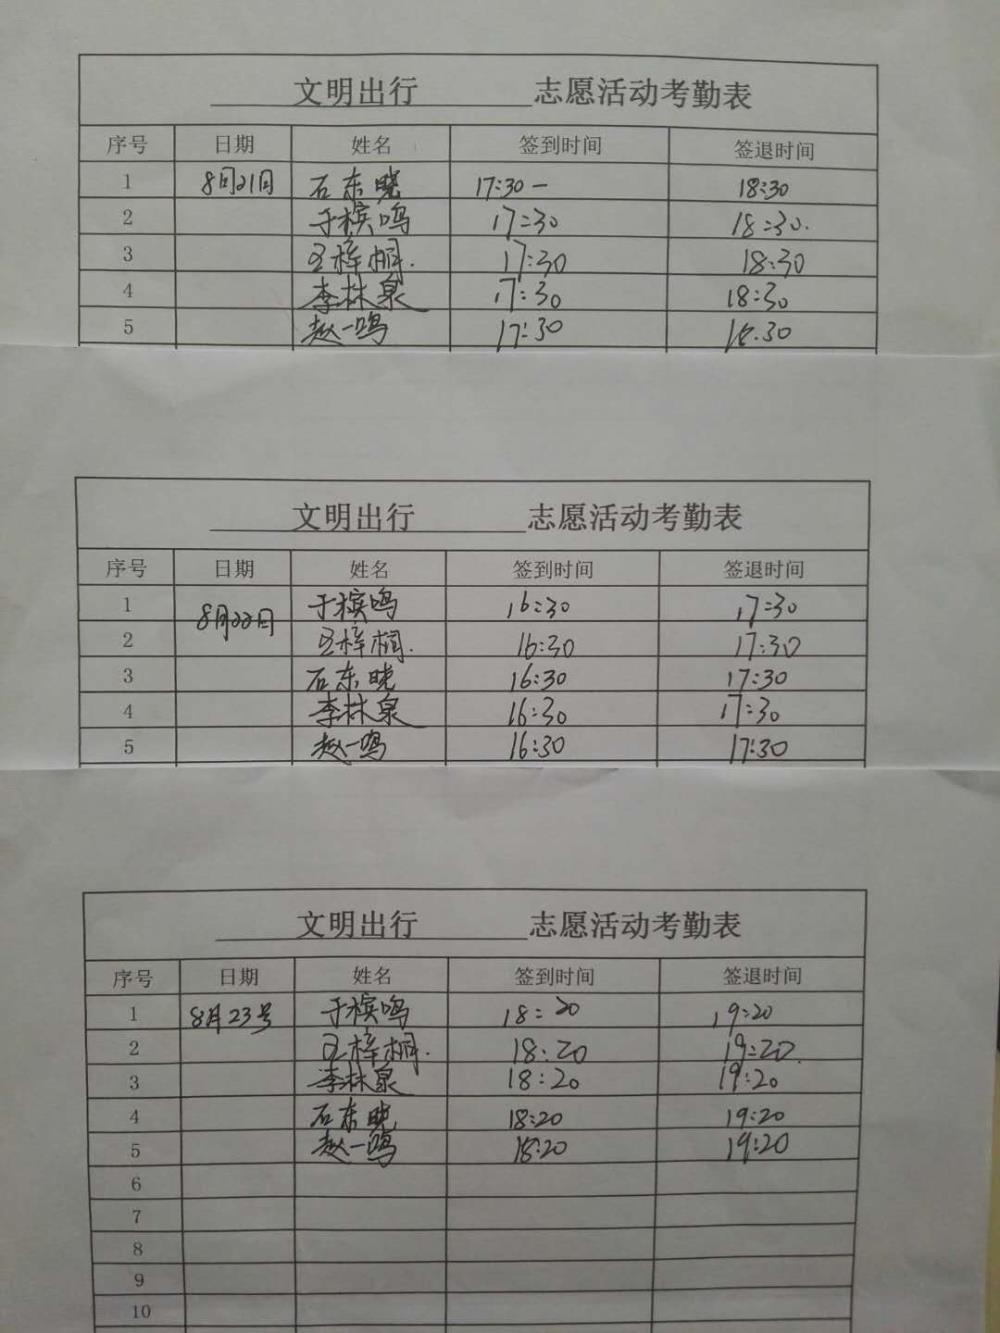 文明出行 志愿活动考勤表
序号 日期 姓名 签到时间 签退时间
1 8月21日 石东晓 17:30 — 18:30
2 于槟鸣 17:30 18:30.
3 王梓桐. 17:30 18:30
4 李林泉 17:30 18:30
5 赵一鸣 17:30 18.30
文明出行 志愿活动考勤表
序号 日期 姓名 签到时间 签退时间
1 8月22日 于槟鸣 16:30 17:30
2 王梓桐. 16:30 17:30
3 石东晓 16:30 17:30
4 李林泉 16:30 17:30
5 赵一鸣 16:30 17:30
文明出行 志愿活动考勤表
序号 日期 姓名 签到时间 签退时间
1 8月23号 于槟鸣 18:20 19:20
2 王梓桐. 18:20 19:20.
3 李林泉 18:20 19:20
4 石东晓 18:20 19:20
5 赵一鸣 18:20 19:20
6
7
8
9
10